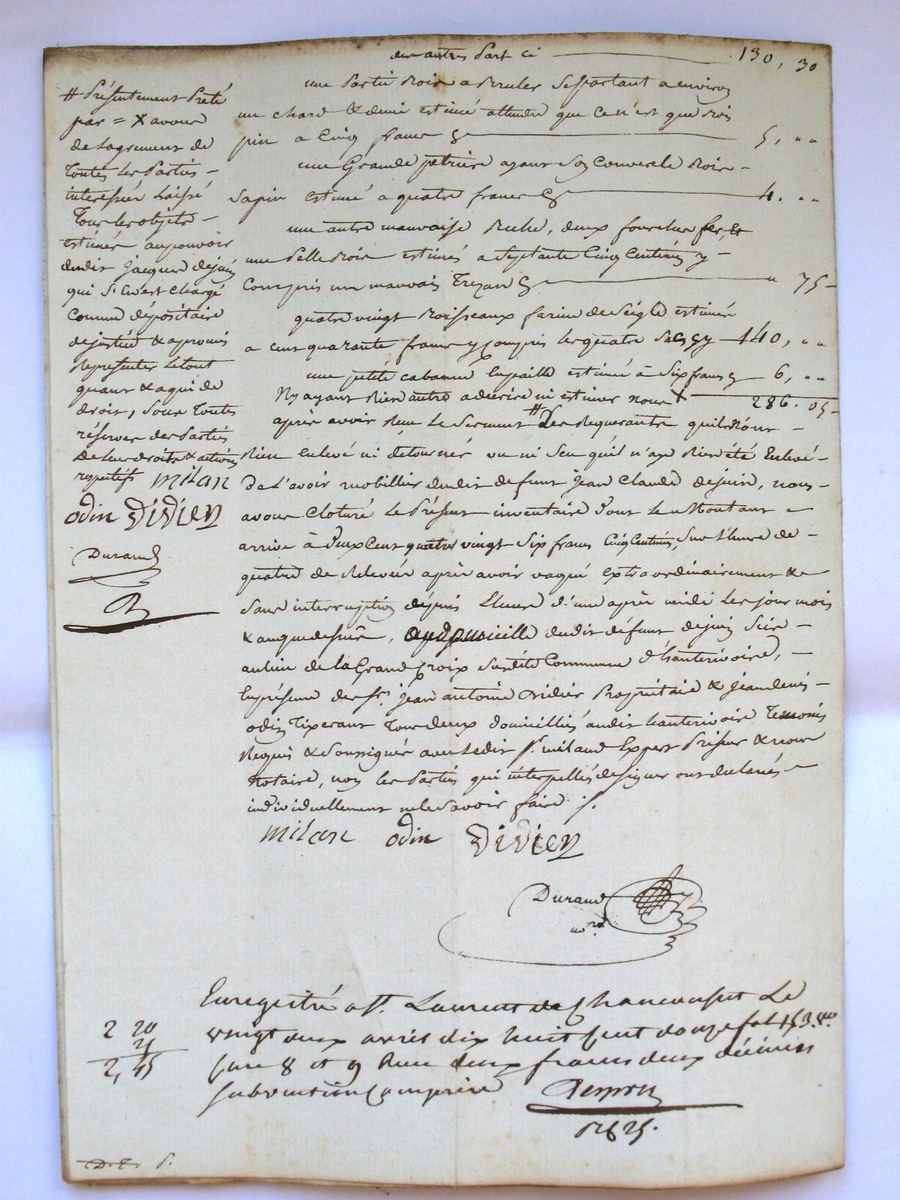 des autres Part ci 130, 30
une Partie Bois a Bruler se portant a environ
un chard & demi estimé attendu que ce n'est que Bois
pin a Cinq francs 5, "
une Grande petriere ayant son Couvercle Bois
Sapin estimé a quatre francs 4. "
une autre mauvaise Ruche, deux fourches fer, et
une Pelle Bois estimés a Septante Cinq Centimes y
Compris un mauvais " 75
quatre vingt Boisseaux farine de Seigle estimée
a cent quarante francs y compris les quatre Sacs 140, "
une petite cabanne en paille estimée à Six francs 6, "
N'y ayant Rien autre a décrire ni estimer nous 286. 05
après avoir Reçu le Serment # des Requerants quils n'ont
Rien enlevé ni detourné vu ni Seu qu'il n'aye Rien été Enlevé
de l'avoir mobillier dudit defunt Jean Claude dejuin, nous
avons Cloturé le Présent inventaire dont le Montant
arrive à deux Cent quatre vingt Six francs Cinq Centimes, Sur l'heure de
quatre de Relevée après avoir vaqué extraordinairement &
Sans interruption depuis l'heure d'une après midi les jour mois
& an que dessus, au domicille dudit défunt dejuin Scis
au lieu de la Grand Croix Susdite Commune d'hauterivoire,
En présence de Srs. Jean antoine Didier Propriétaire & Jean denis
odin Tixerant Tous deux domiciliés audit hauterivoire Temoins
Requis & Soussignés avec ledit Sr. miland Expert Priseur & nous
Notaire, non les Parties qui interpellés de signer ont declarés
individuellement ne le Savoir faire ./.
milan odin Didier
Durand
nore
# Présentement Prété
par = X avons
de l'agrement de
Toutes les Parties
interessées Laissé
Tous les objets
estimés au pouvoir
dudit Jacques dejuin
qui S'en est Chargé
Comme dépositaire
de justice & a promis
Représenter le tout
quant & a qui de
droit, Sous Toutes
réserves des Parties
de leurs droits & actions
respectifs milan
odin Didier
Durand
Enregistré a St. Laurent de Chamousset Le
vingt deux avril dix huit Cent douze fol 153
Case 8 et 9 Reçu deux francs deux décimes
Subvention Comprise
2 20
2, 45